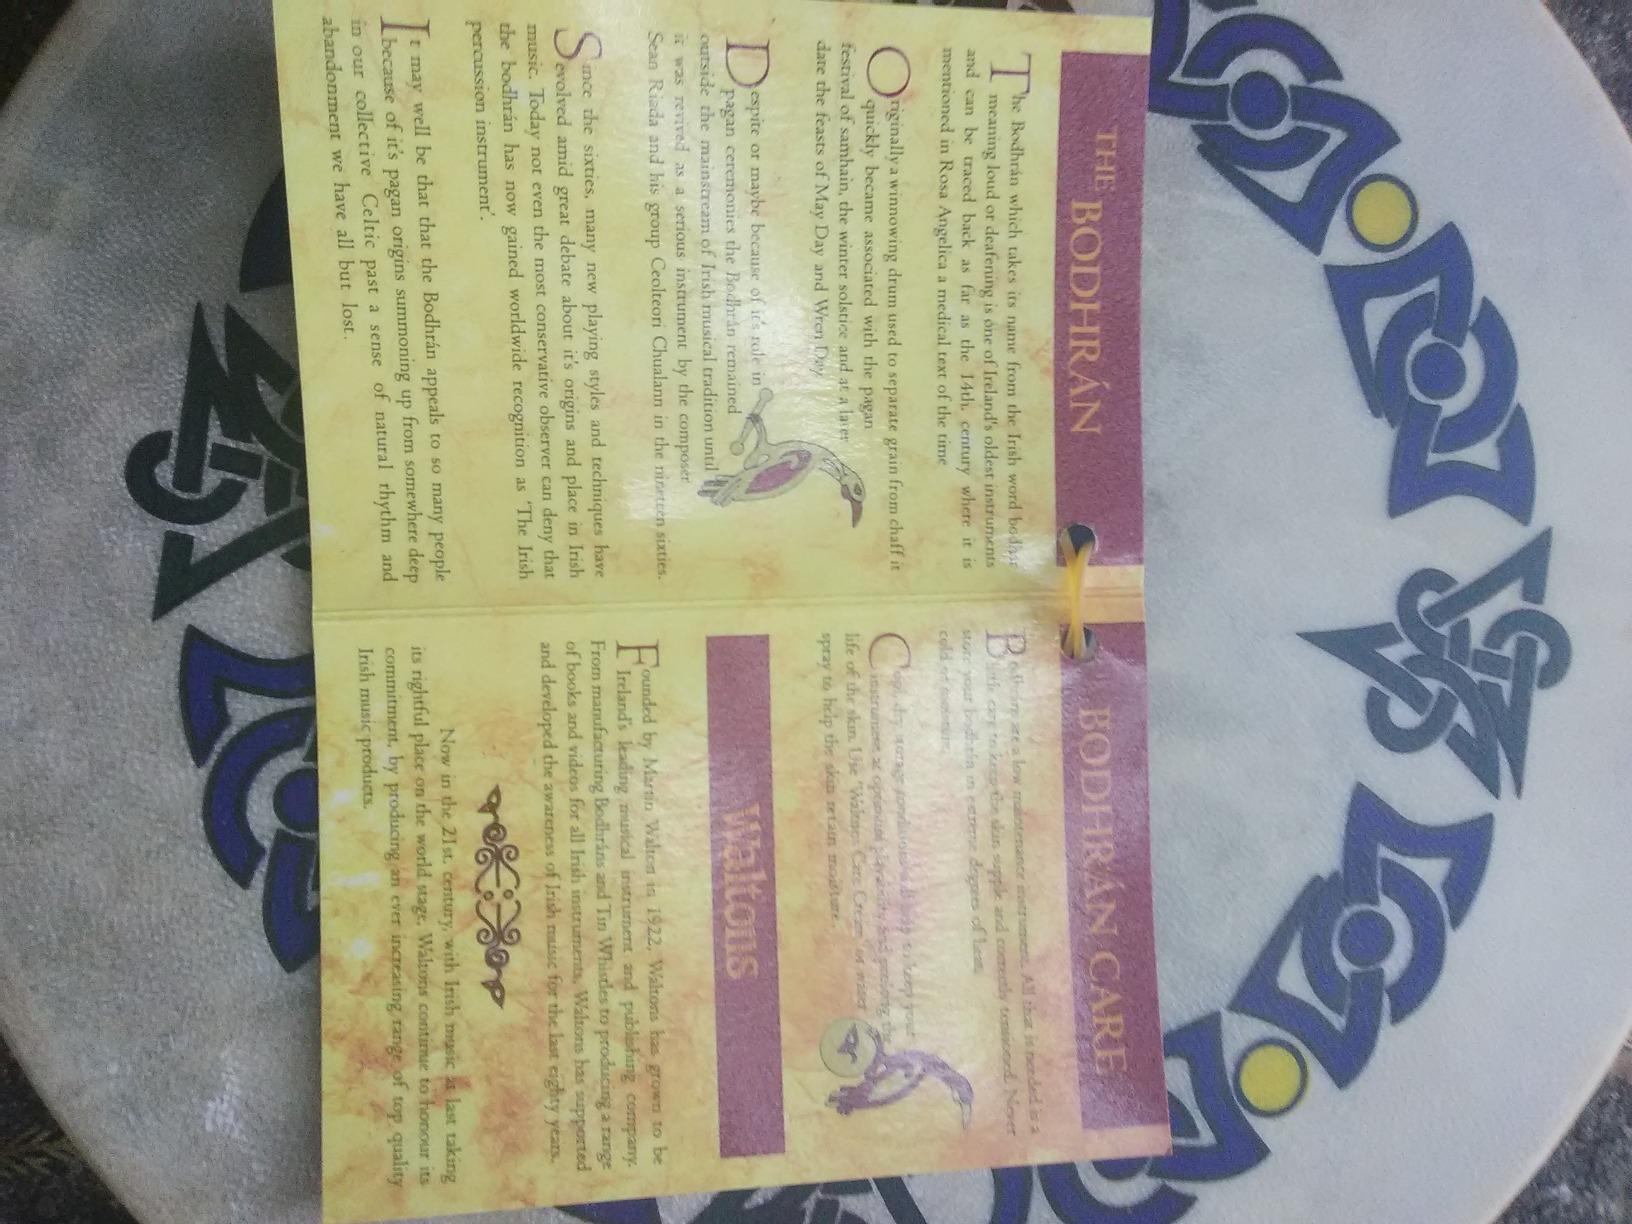 THE BODHRÁN
The Bodhrán which takes its name from the Irish word bodhar
meaning loud or deafening is one of Ireland's oldest instruments
and can be traced back as far as the 14th. century where it is
mentioned in Rosa Angelica a medical text of the time
Originally a winnowing drum used to separate grain from chaff it
quickly became associated with the pagan
festival of samhain, the winter solstice and at a later
date the feasts of May Day and Wren Day
Despite or maybe because of it's role in
pagan ceremonies the Bodhrán remained
outside the mainstream of Irish musical tradition until
it was revived as a serious instrument by the composer
Sean Riada and his group Ceolteori Chualann in the nineteen sixties.
Since the sixties, many new playing styles and techniques have
evolved amid great debate about it's origins and place in Irish
music. Today not even the most conservative observer can deny that
the bodhrán has now gained worldwide recognition as 'The Irish
percussion instrument'.
It may well be that the Bodhrán appeals to so many people
because of it's pagan origins summoning up from somewhere deep
in our collective Celtic past a sense of natural rhythm and
abandonment we have all but lost.
BODHRÁN CARE
are a low maintenance instrument. All that is needed is a
little care to keep the skin supple and correctly tensioned. Never
store your bodhrán in extreme degrees of heat,
cold or
Cool, dry storage conditions to keep your
instrument at and prolong the
life of the skin. Use 'Waltons Care Cream' or water
spray to help the skin retain moisture.
Waltons
Founded by Martin Walton in 1922, Waltons has grown to be
Ireland's leading musical instrument and publishing company.
From manufacturing Bodhráns and Tin Whistles to producing a range
of books and videos for all Irish instruments, Waltons has supported
and developed the awareness of Irish music for the last eighty years.
Now in the 21st. century, with Irish music at last taking
its rightful place on the world stage, Waltons continue to honour its
commitment, by producing an ever increasing range of top quality
Irish music products.